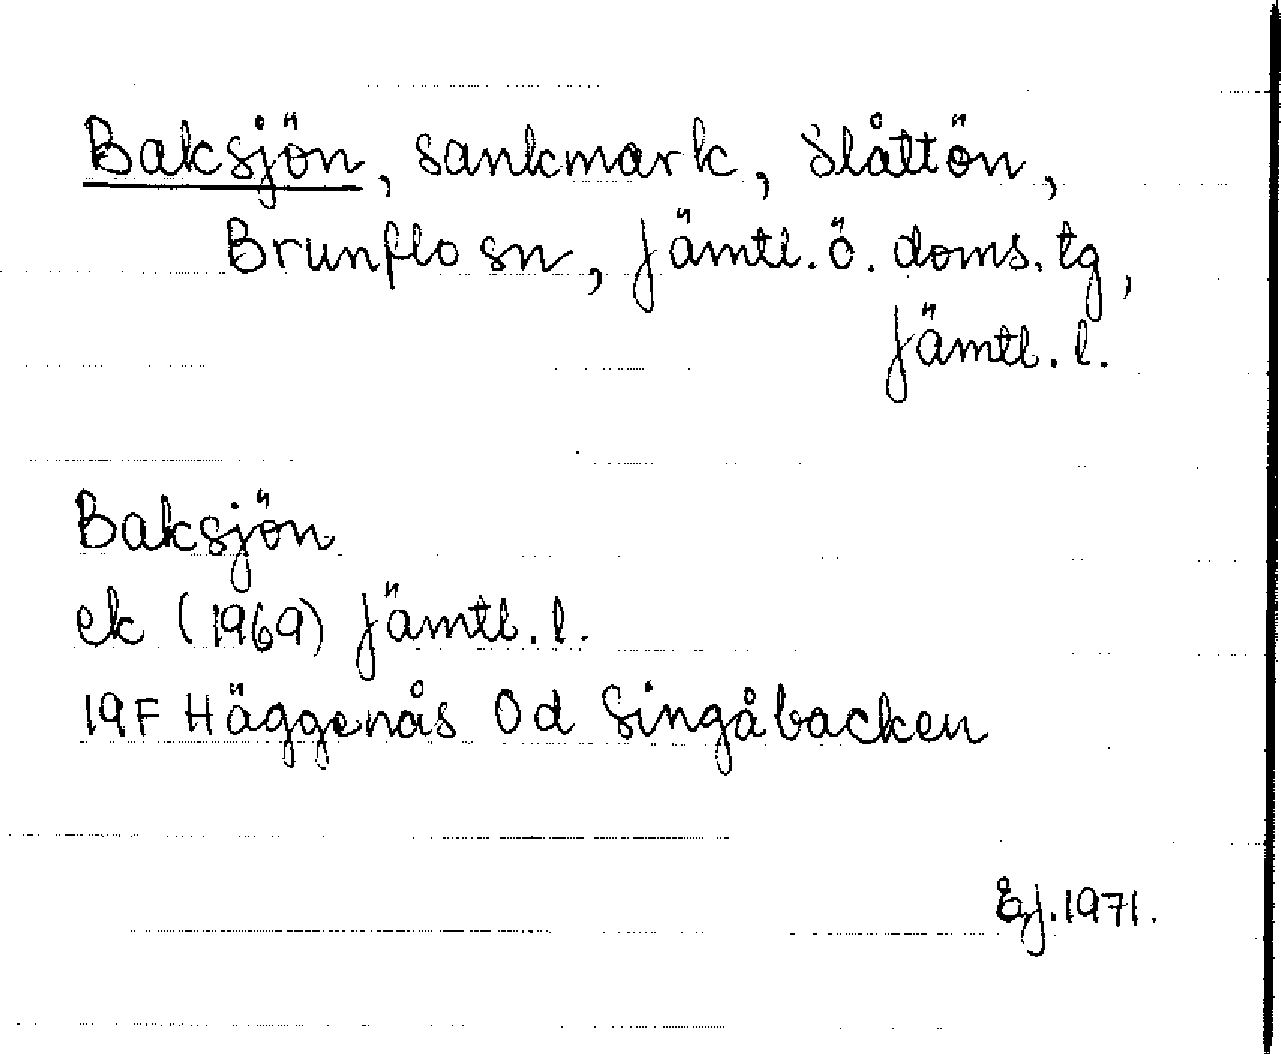 Baksjön, sankmark, Slåttön,
Brunflo sn, Jämtl. ö. doms. tg,
Jämtl. l.
Baksjön
ek (1969) Jämtl. l.
19F Häggenås 0d Singåbacken
1971.